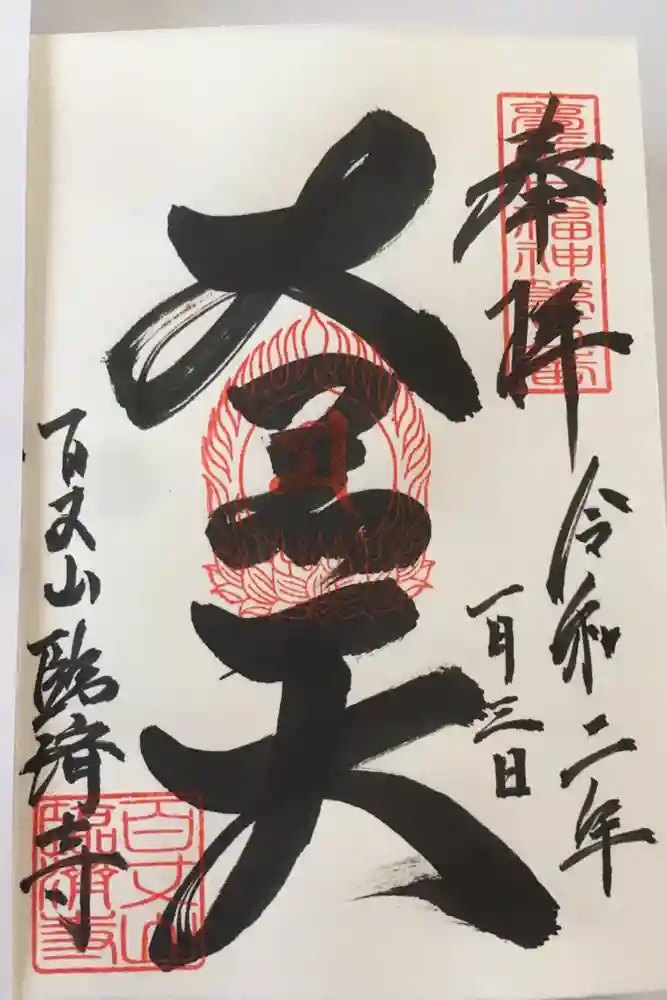 奉拝
令和二年
一月三日
大黒天
百丈山 臨濟寺
百丈山
臨濟寺